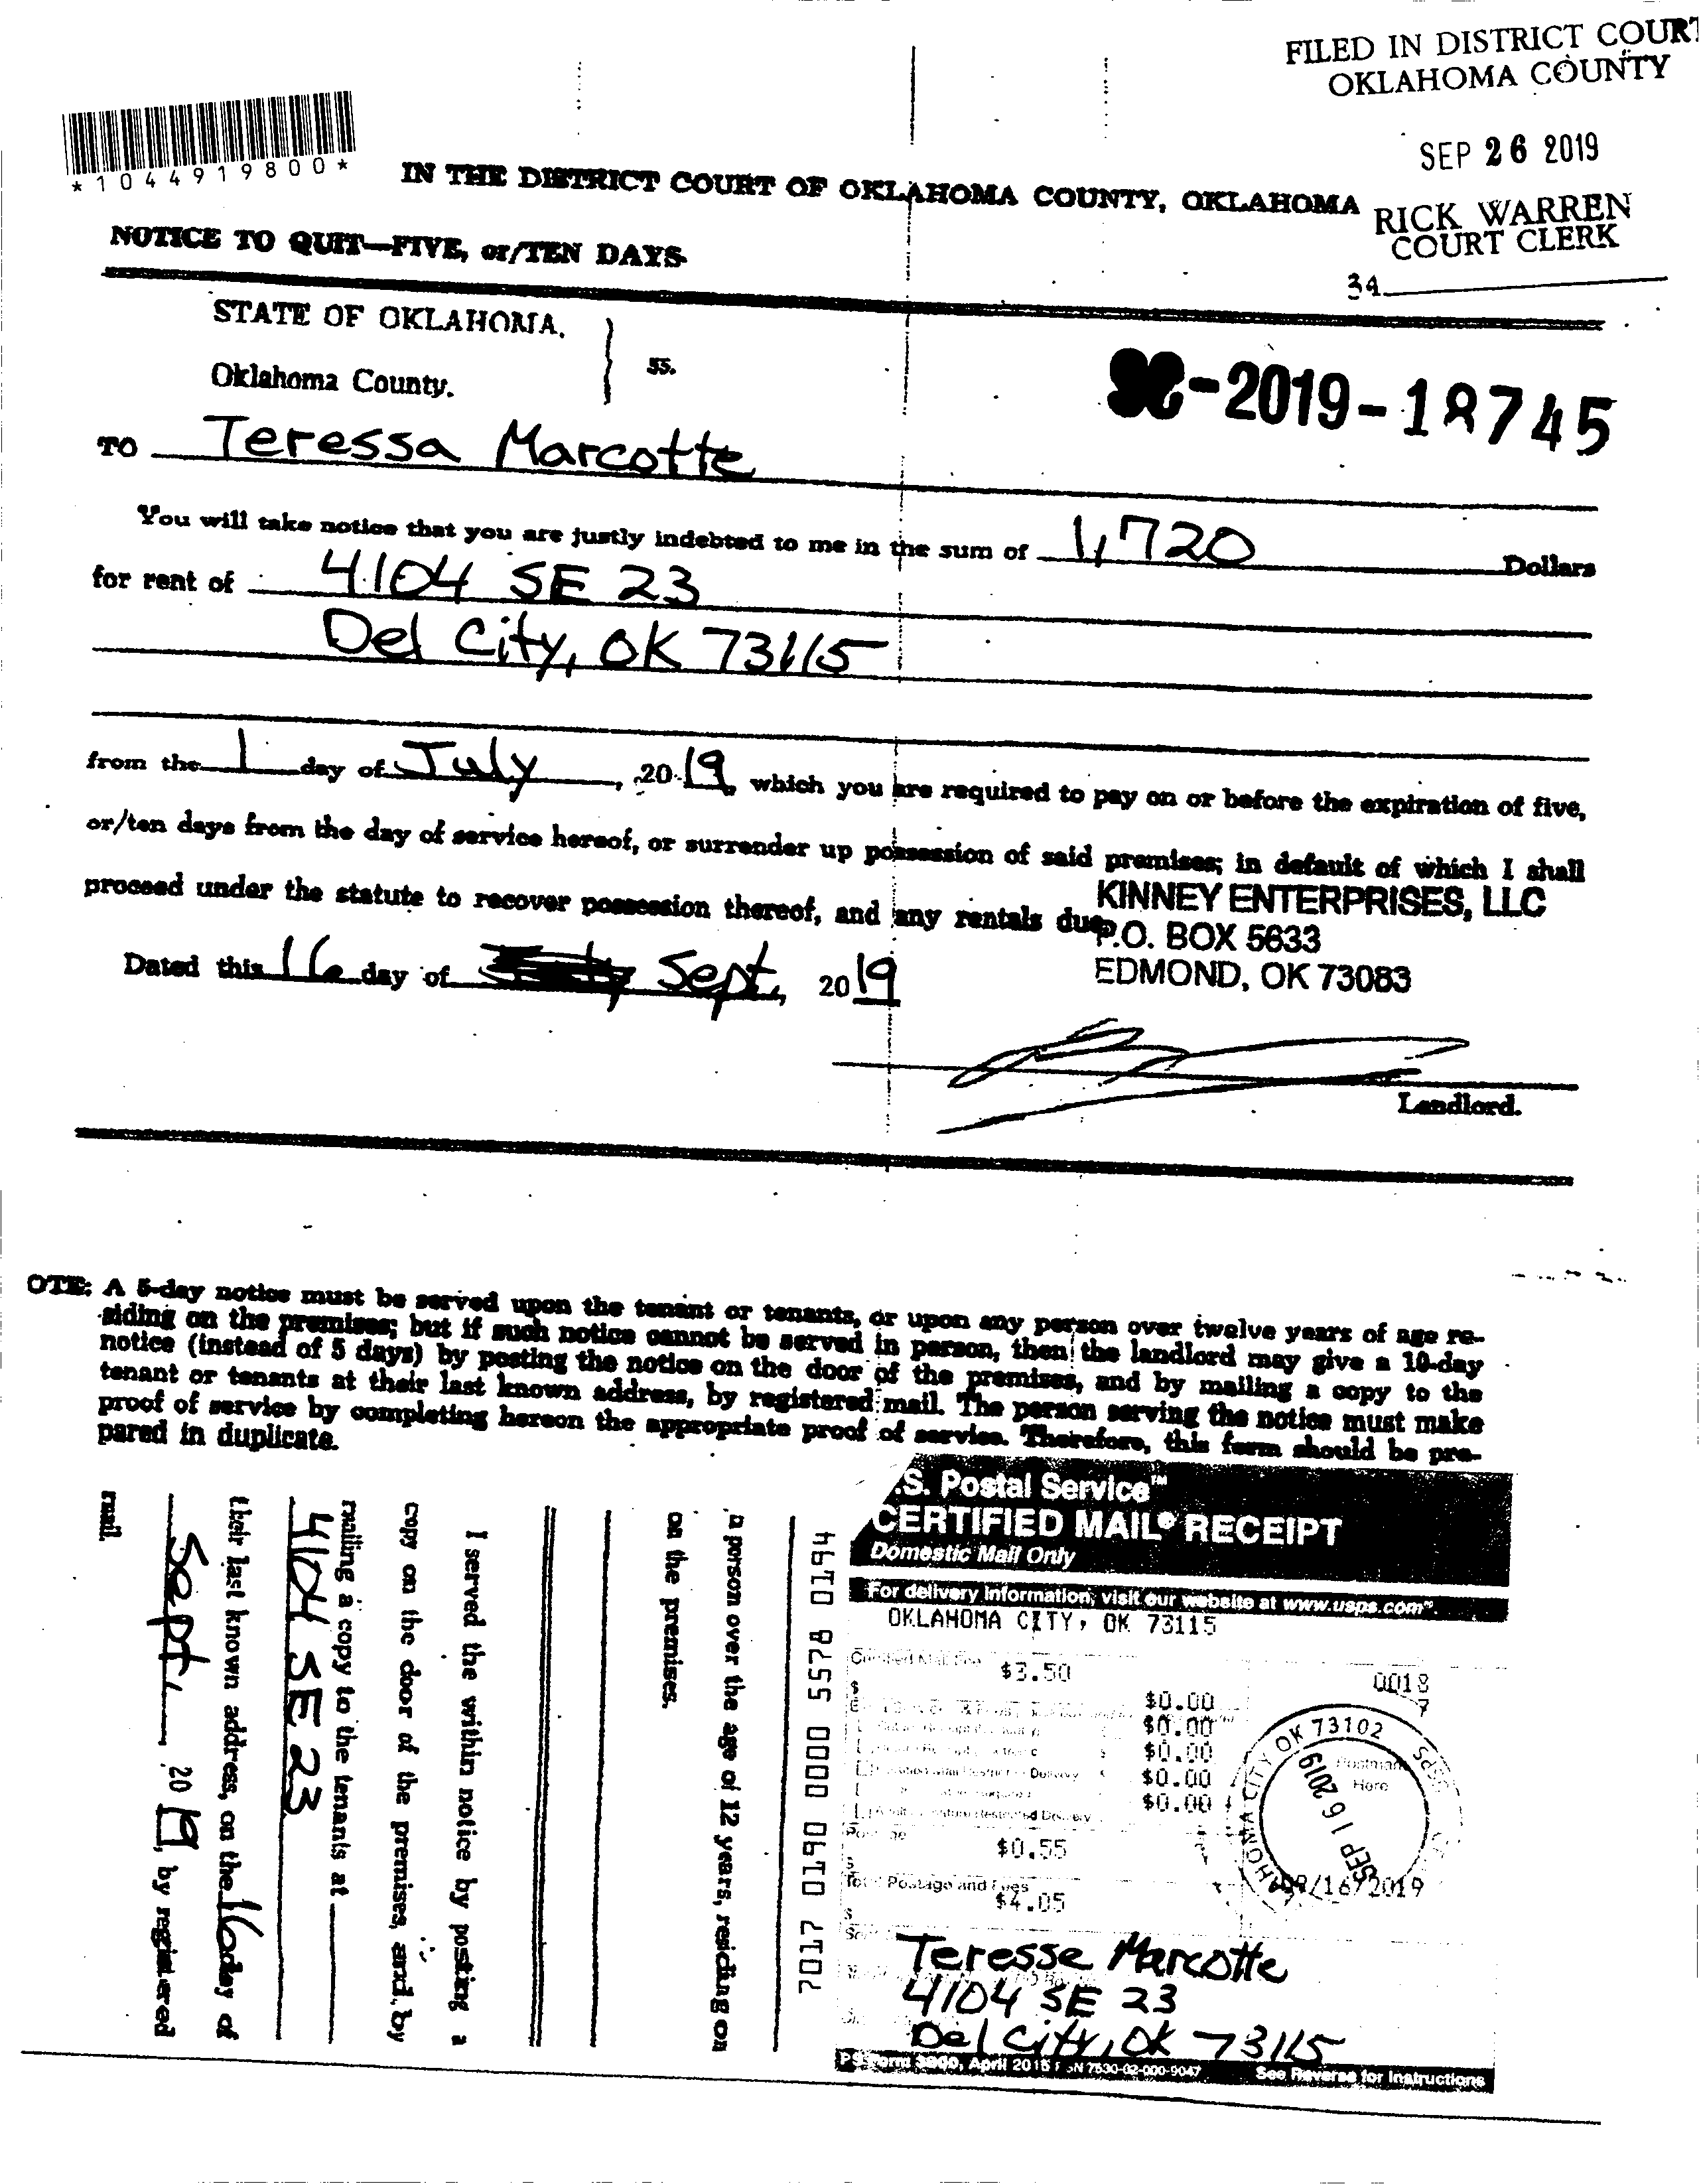 FILED IN DISTRICT COURT
OKLAHOMA COUNTY
SEP 26 2019
RICK WARREN
COURT CLERK
34
*1044919800*
IN THE DISTRICT COURT OF OKLAHOMA COUNTY, OKLAHOMA
NOTICE TO QUIT—FIVE, or/TEN DAYS
STATE OF OKLAHOMA.
Oklahoma County.
} ss.
SC-2019-18745
TO Teressa Marcotte
You will take notice that you are justly indebted to me in the sum of 1,720 Dollars
for rent of 4104 SE 23
Del City, OK 73115
from the 1 day of July, 2019, which you are required to pay on or before the expiration of five,
or/ten days from the day of service hereof, or surrender up possession of said premises; in default of which I shall
proceed under the statute to recover possession thereof, and any rentals due.
KINNEY ENTERPRISES, LLC
P.O. BOX 5633
EDMOND, OK 73083
Dated this 16 day of Sept, 2019
Landlord.
OTE: A 5-day notice must be served upon the tenant or tenants, or upon any person over twelve years of age re-
siding on the premises; but if such notice cannot be served in person, then the landlord may give a 10-day
notice (instead of 5 days) by posting the notice on the door of the premises, and by mailing a copy to the
tenant or tenants at their last known address, by registered mail. The person serving the notice must make
proof of service by completing hereon the appropriate proof of service. Therefore, this form should be pre-
pared in duplicate.
a person over the age of 12 years, residing on
on the premises.
I served the within notice by posting a
copy on the door of the premises, and, by
mailing a copy to the tenants at
4104 SE 23
their last known address, on the 16 day of
Sept, 2019, by registered
mail.
7017 0190 0000 5578 0194
.S. Postal Service™
CERTIFIED MAIL® RECEIPT
Domestic Mail Only
For delivery information, visit our website at www.usps.com™.
OKLAHOMA CITY, OK 73115
Certified Mail Fee $3.50
0018
7
$0.00
$0.00
$0.00
$0.00
$0.00
Postage $0.55
Total Postage and Fees $4.05
Postmark
Here
OK 73102
SEP 16 2019
USPS
09/16/2019
Teresse Marcotte
4104 SE 23
Del City, OK 73115
PS Form 3800, April 2015 PSN 7530-02-000-9047 See Reverse for Instructions